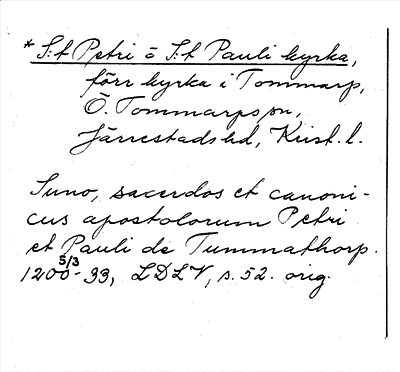 * S:t Petri o S:t Pauli kyrka,
förr kyrka i Tommarp,
Ö. Tommarps sn,
Järrestads hd, Krist. l.
Suno, sacerdos et canoni-
cus apostolorum Petri
et Pauli de Tummathorp.
5/3
1200-33, LDLV, s. 52. orig.